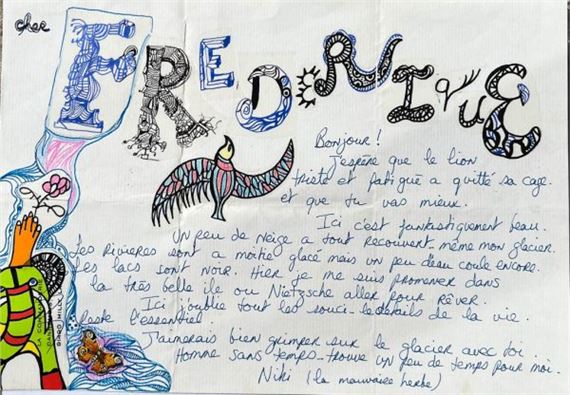 cher
FREDERIQUE
Bonjour!
J'espère que le lion
triste et fatiguè a quittè sa cage.
et que tu vas mieux.
Ici c'est fantastiquement beau.
Un peu de neige a tout recouvert même mon glacier.
Les rivieres sont a moitie glacé mais un peu d'eau coule encore.
les lacs sont noir. Hier je me suis promener dans
la très belle ile ou Nietzsche aller pour rêver.
Ici j'oublie tout les souci - les details de la vie.
reste l'essentiel.
J'aimerais bien grimper sur le glacier avec toi.
Homme sans temps - trouve un peu de temps pour moi.
Niki (la mauvaise herbe)